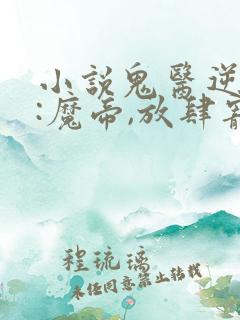 小說鬼醫逆
:魔帝,放肆寵
程琉璃
未经同意禁止转载